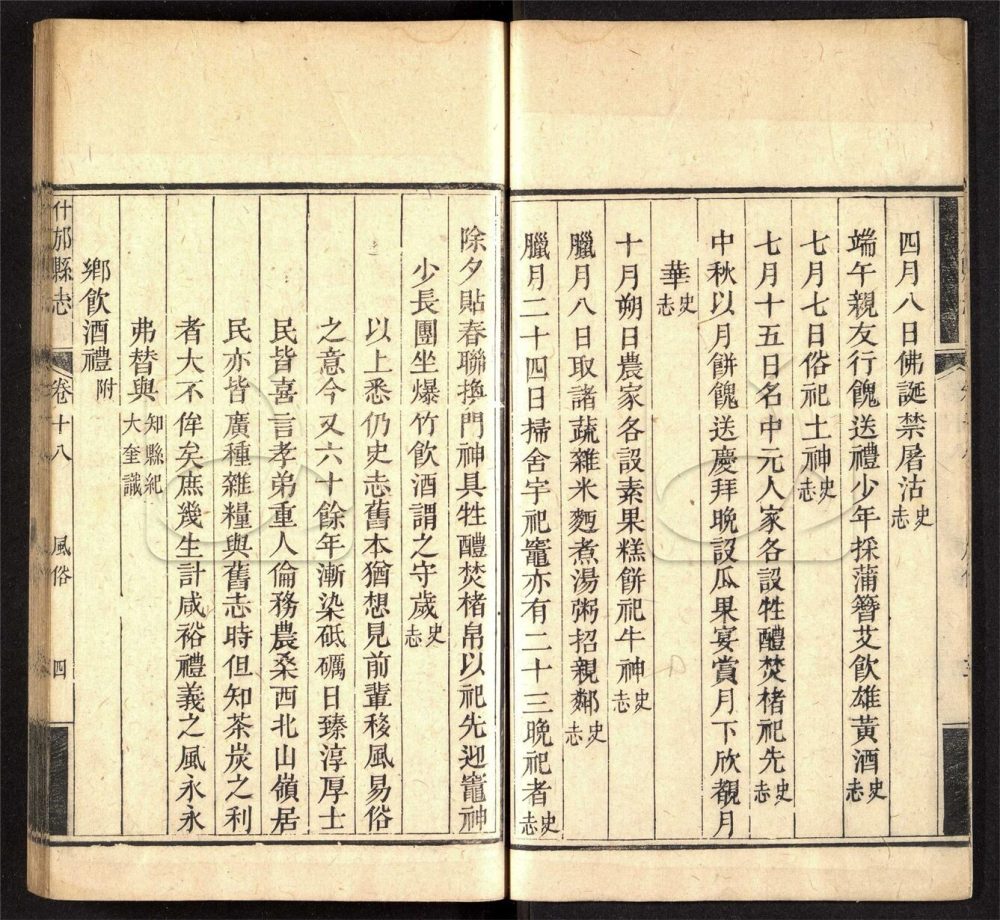 四月八日佛誕禁屠沽史志
端午親友行餽送禮少年採蒲簪艾飲雄黃酒史志
七月七日俗祀土神史志
七月十五日名中元人家各設牲醴焚楮祀先史志
中秋以月餅餽送慶拜晚設瓜果宴賞月下欣覩月
華史志
十月朔日農家各設素果糕餅祀牛神史志
臘月八日取諸蔬雜米麪煮湯粥招親鄰史志
臘月二十四日掃舍宇祀竈亦有二十三晚祀者史志
除夕貼春聯換門神具牲醴焚楮帛以祀先迎竈神
少長團坐爆竹飲酒謂之守歲史志
以上悉仍史志舊本猶想見前輩移風易俗
之意今又六十餘年漸染砥礪日臻淳厚士
民皆喜言孝弟重人倫務農桑西北山嶺居
民亦皆廣種雜糧與舊志時但知茶炭之利
者大不侔矣庶幾生計咸裕禮義之風永永
弗替與知縣紀大奎識
鄉飲酒禮附
什邡縣志 卷十八 風俗 四